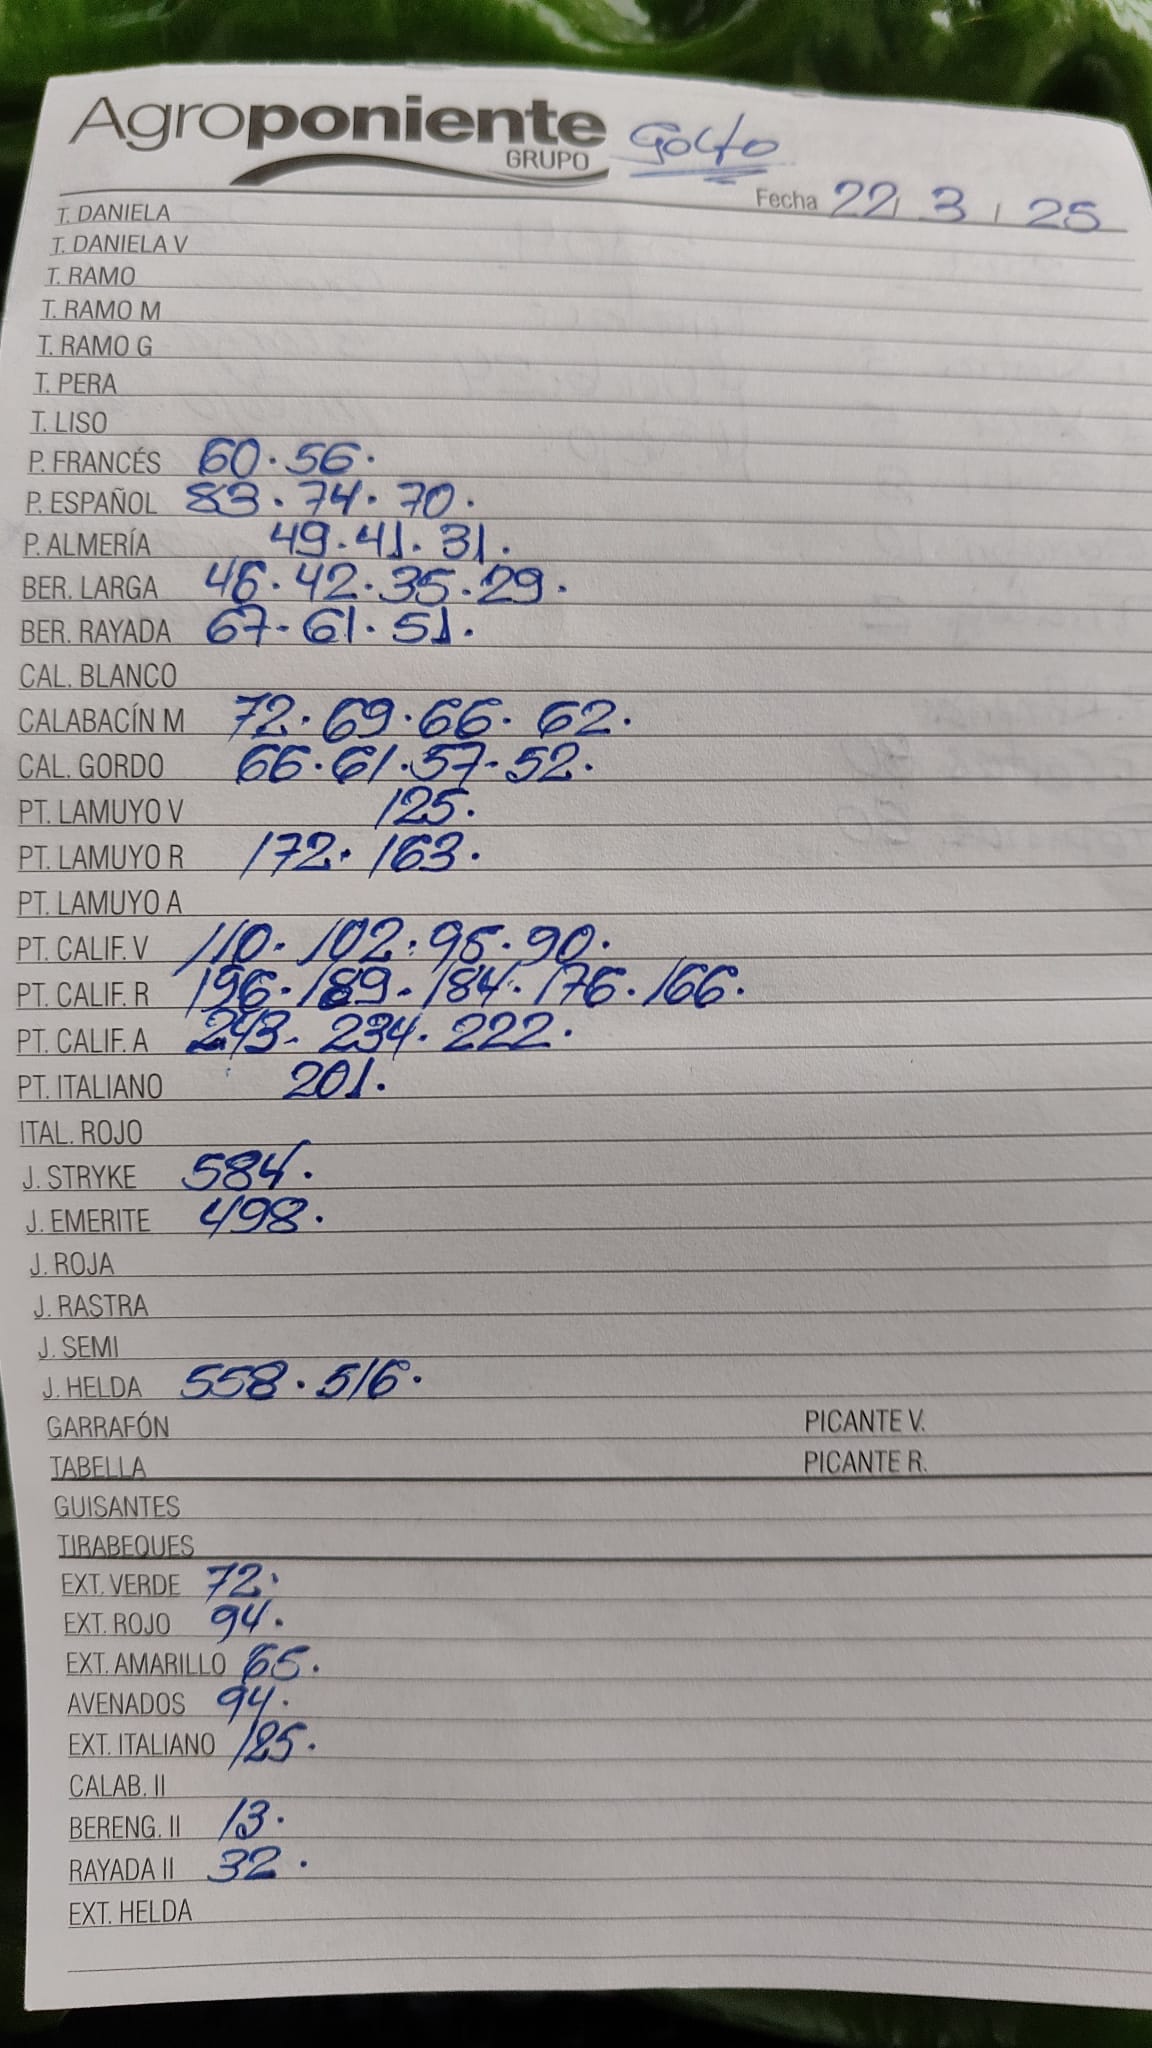 Agroponiente Golfo
GRUPO
Fecha 22 / 3 / 25
T. DANIELA
T. DANIELA V
T. RAMO
T. RAMO M
T. RAMO G
T. PERA
T. LISO
P. FRANCÉS 60. 56.
P. ESPAÑOL 83. 74. 70.
P. ALMERÍA 49. 41. 31.
BER. LARGA 46. 42. 35. 29.
BER. RAYADA 67- 61. 51.
CAL. BLANCO
CALABACÍN M 72. 69. 66. 62.
CAL. GORDO 66. 61. 57- 52.
PT. LAMUYO V 125.
PT. LAMUYO R 172. 163.
PT. LAMUYO A
PT. CALIF. V 110. 102. 95. 90.
PT. CALIF. R 196. 189. 184. 176. 166.
PT. CALIF. A 243- 234. 222.
PT. ITALIANO 201.
ITAL. ROJO
J. STRYKE 584.
J. EMERITE 498.
J. ROJA
J. RASTRA
J. SEMI
J. HELDA 558. 516.
GARRAFÓN PICANTE V.
TABELLA PICANTE R.
GUISANTES
TIRABEQUES
EXT. VERDE 72.
EXT. ROJO 94.
EXT. AMARILLO 65.
AVENADOS 94.
EXT. ITALIANO 125.
CALAB. II
BERENG. II 13.
RAYADA II 32.
EXT. HELDA